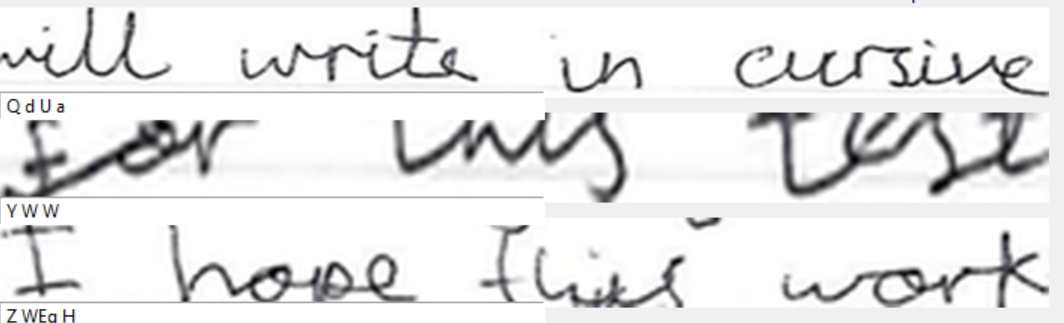 will write in cursive
Q d U a
for this test
Y W W
I hope this work
Z WEq H